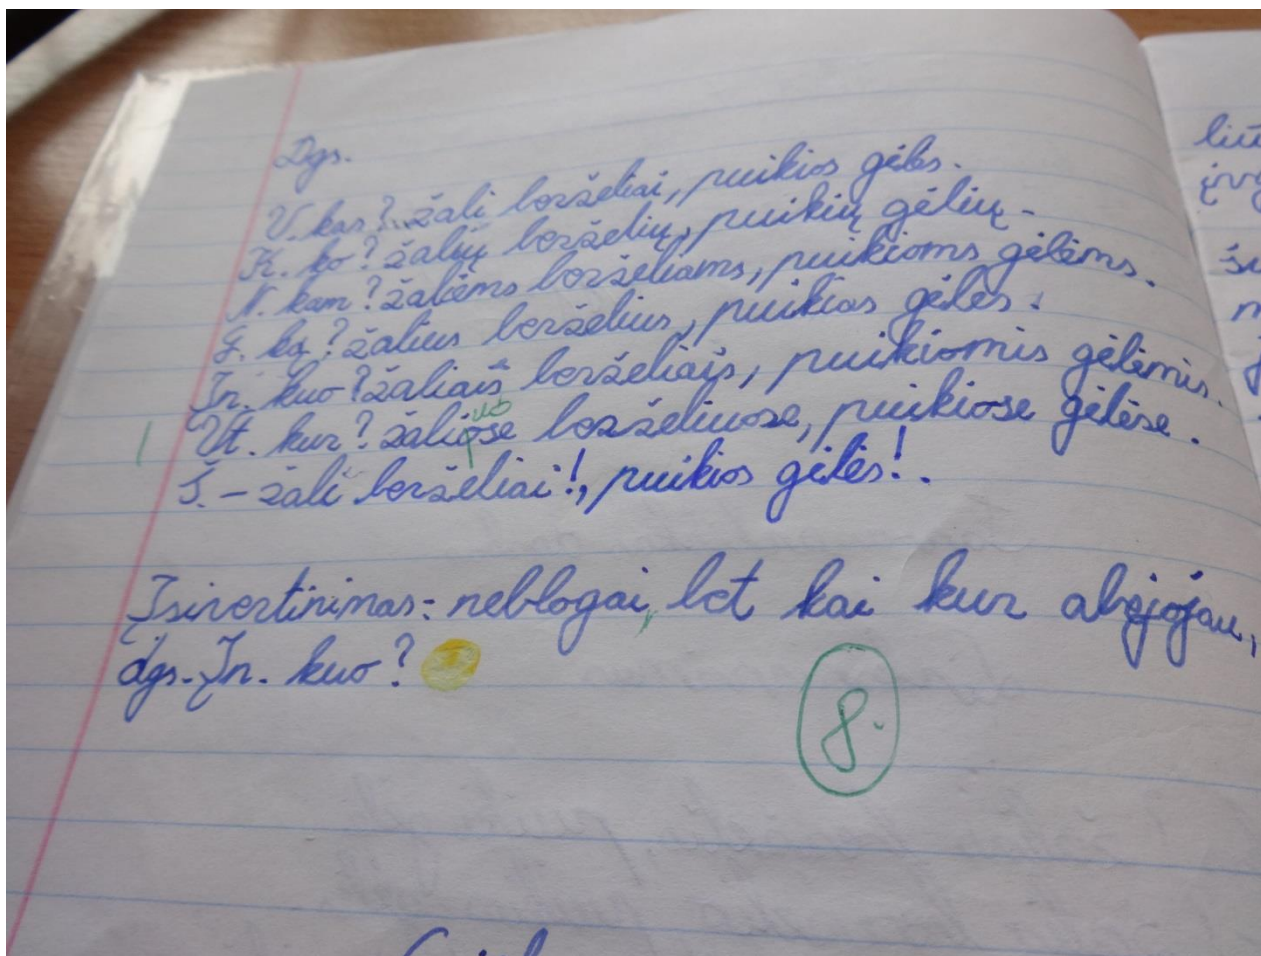 Dgs.
V. kas? žali berželiai, puikios gėlės.
K. ko? žalių berželių, puikių gėlių.
N. kam? žaliems berželiams, puikioms gėlėms.
G. ką? žalius berželius, puikias gėles.
Įn. kuo? žaliais berželiais, puikiomis gėlėmis.
Vt. kur? žaliose berželiuose, puikiose gėlėse.
uo
Š. – žali berželiai!, puikios gėlės!.
Įsivertinimas: neblogai, bet kai kur abejojau,
dgs. Įn. kuo?
8.
liū
įvy